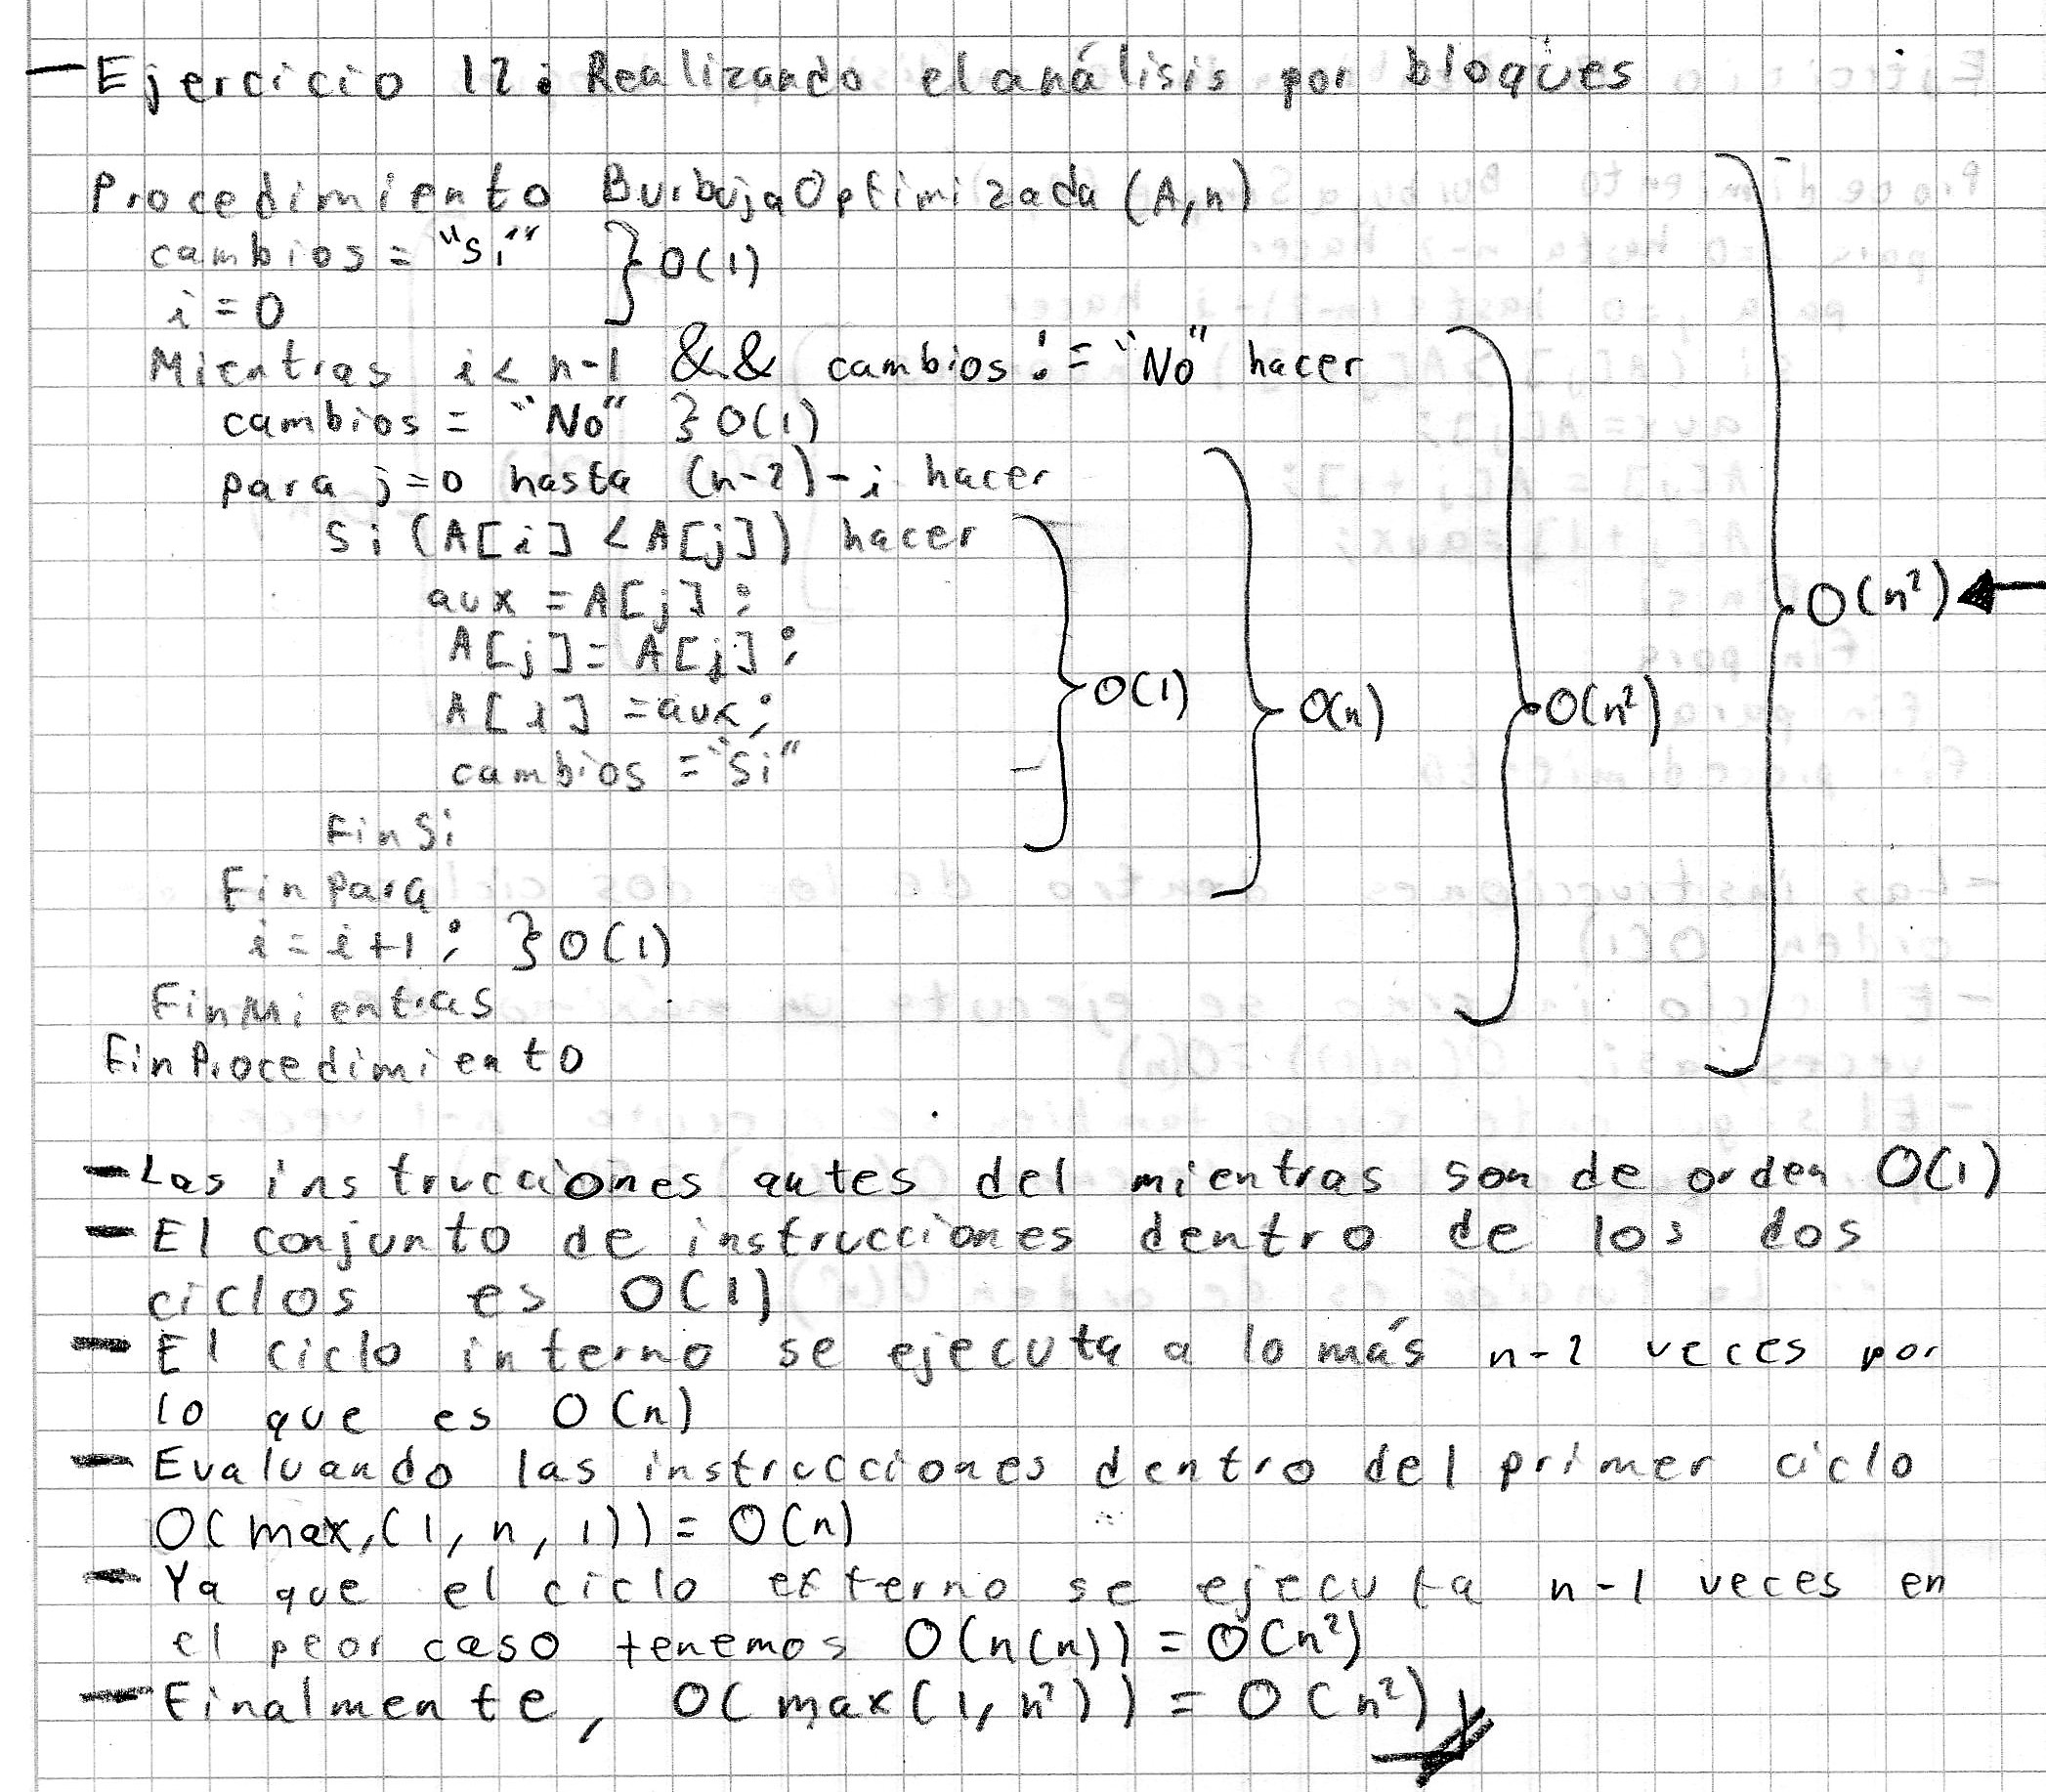 - Ejercicio 12: Realizando el análisis por bloques
Procedimiento BurbujaOptimizada (A,n)
cambios = "Si"
i = 0
} O(1)
Mientras i < n-1 && cambios != "No" hacer
cambios = "No" } O(1)
para j=0 hasta (n-2)-i hacer
Si (A[i] < A[j]) hacer
aux = A[j];
A[j] = A[j];
A[i] = aux;
cambios = "Si"
O(1)
O(n)
O(n²)
O(n²)
FinSi
Fin Para
i = i+1; } O(1)
FinMientras
Fin Procedimiento
- Las instrucciones antes del mientras son de orden O(1)
- El conjunto de instrucciones dentro de los dos
ciclos es O(1)
- El ciclo interno se ejecuta a lo más n-2 veces por
lo que es O(n)
- Evaluando las instrucciones dentro del primer ciclo
O(max(1, n, 1)) = O(n)
- Ya que el ciclo externo se ejecuta n-1 veces en
el peor caso tenemos O(n(n)) = O(n²)
- Finalmente, O(max(1, n²)) = O(n²)